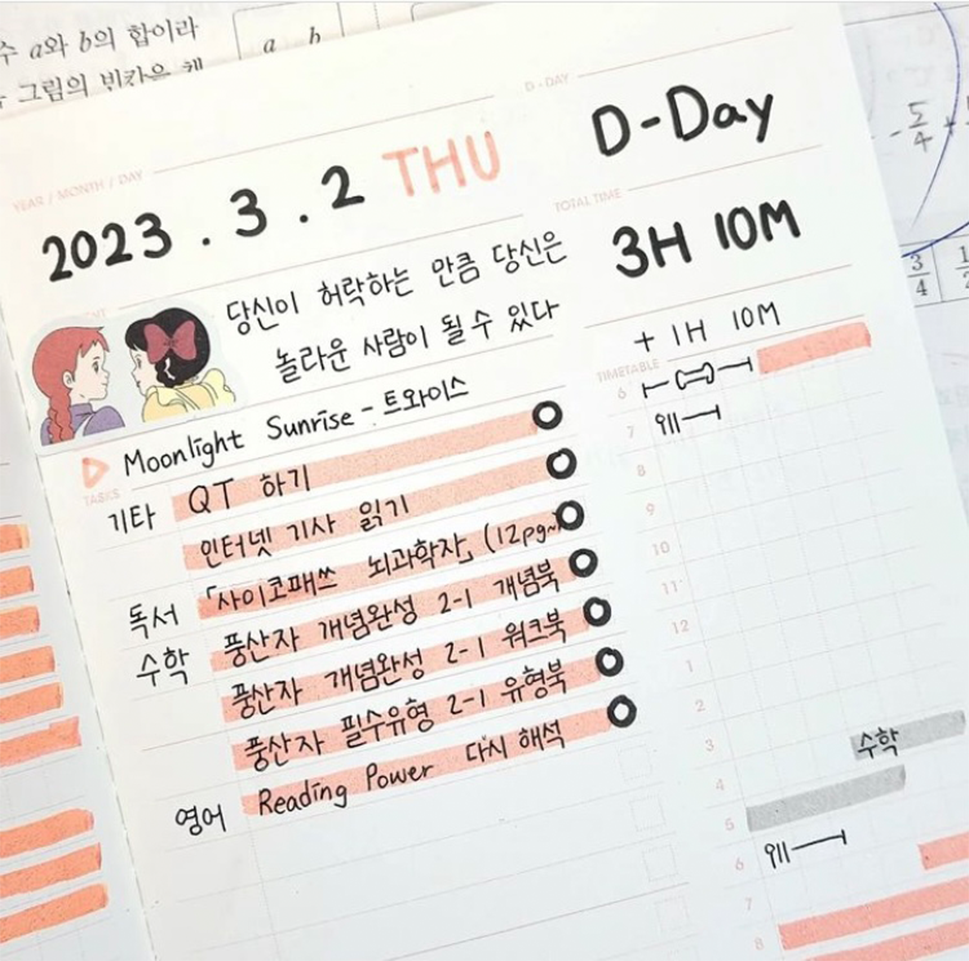 수 a와 b의 합이라
a b
그림의 빈칸은
D-DAY
D-Day
YEAR / MONTH / DAY
2023 . 3 . 2 THU
TOTAL TIME
3H 10M
당신이 허락하는 만큼 당신은
놀라운 사람이 될 수 있다
+ 1H 10M
Moonlight Sunrise - 트와이스
TIMETABLE
TASKS
기타 QT 하기
인터넷 기사 읽기
독서 「사이코패쓰 뇌과학자」 (12pg~)
수학 풍산자 개념완성 2-1 개념북
풍산자 개념완성 2-1 워크북
풍산자 필수유형 2-1 유형북
영어 Reading Power 다시 해석
6
7
8
9
10
11
12
1
2
3 수학
4
5
6
7
8
-5/4 +
3/4